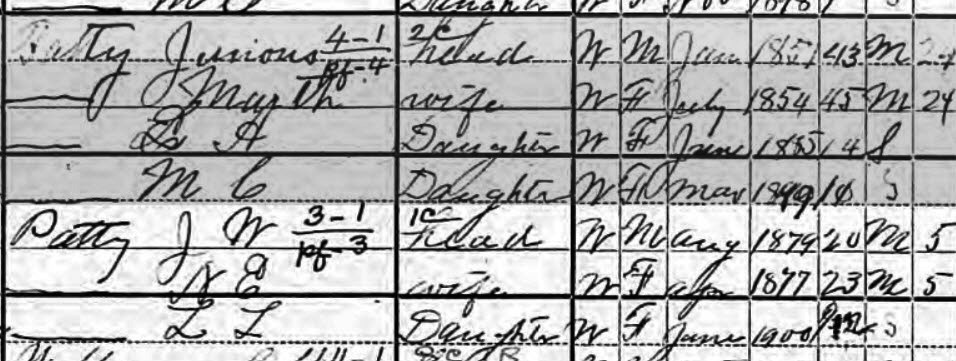 Daughter W F Nov 1898 1 S
Patty Junious 4-1 pf-4 2/C head W M Jan 1857 43 M 24
May th wife W F July 1854 45 M 24
A Daughter W F June 1885 14 S
M C Daughter W F Mar S
Patty J W 3-1 pf-3 1C head W M Aug 1879 20 M 5
N E wife W F Apr 1877 23 M 5
L L Daughter W F June 1900 S